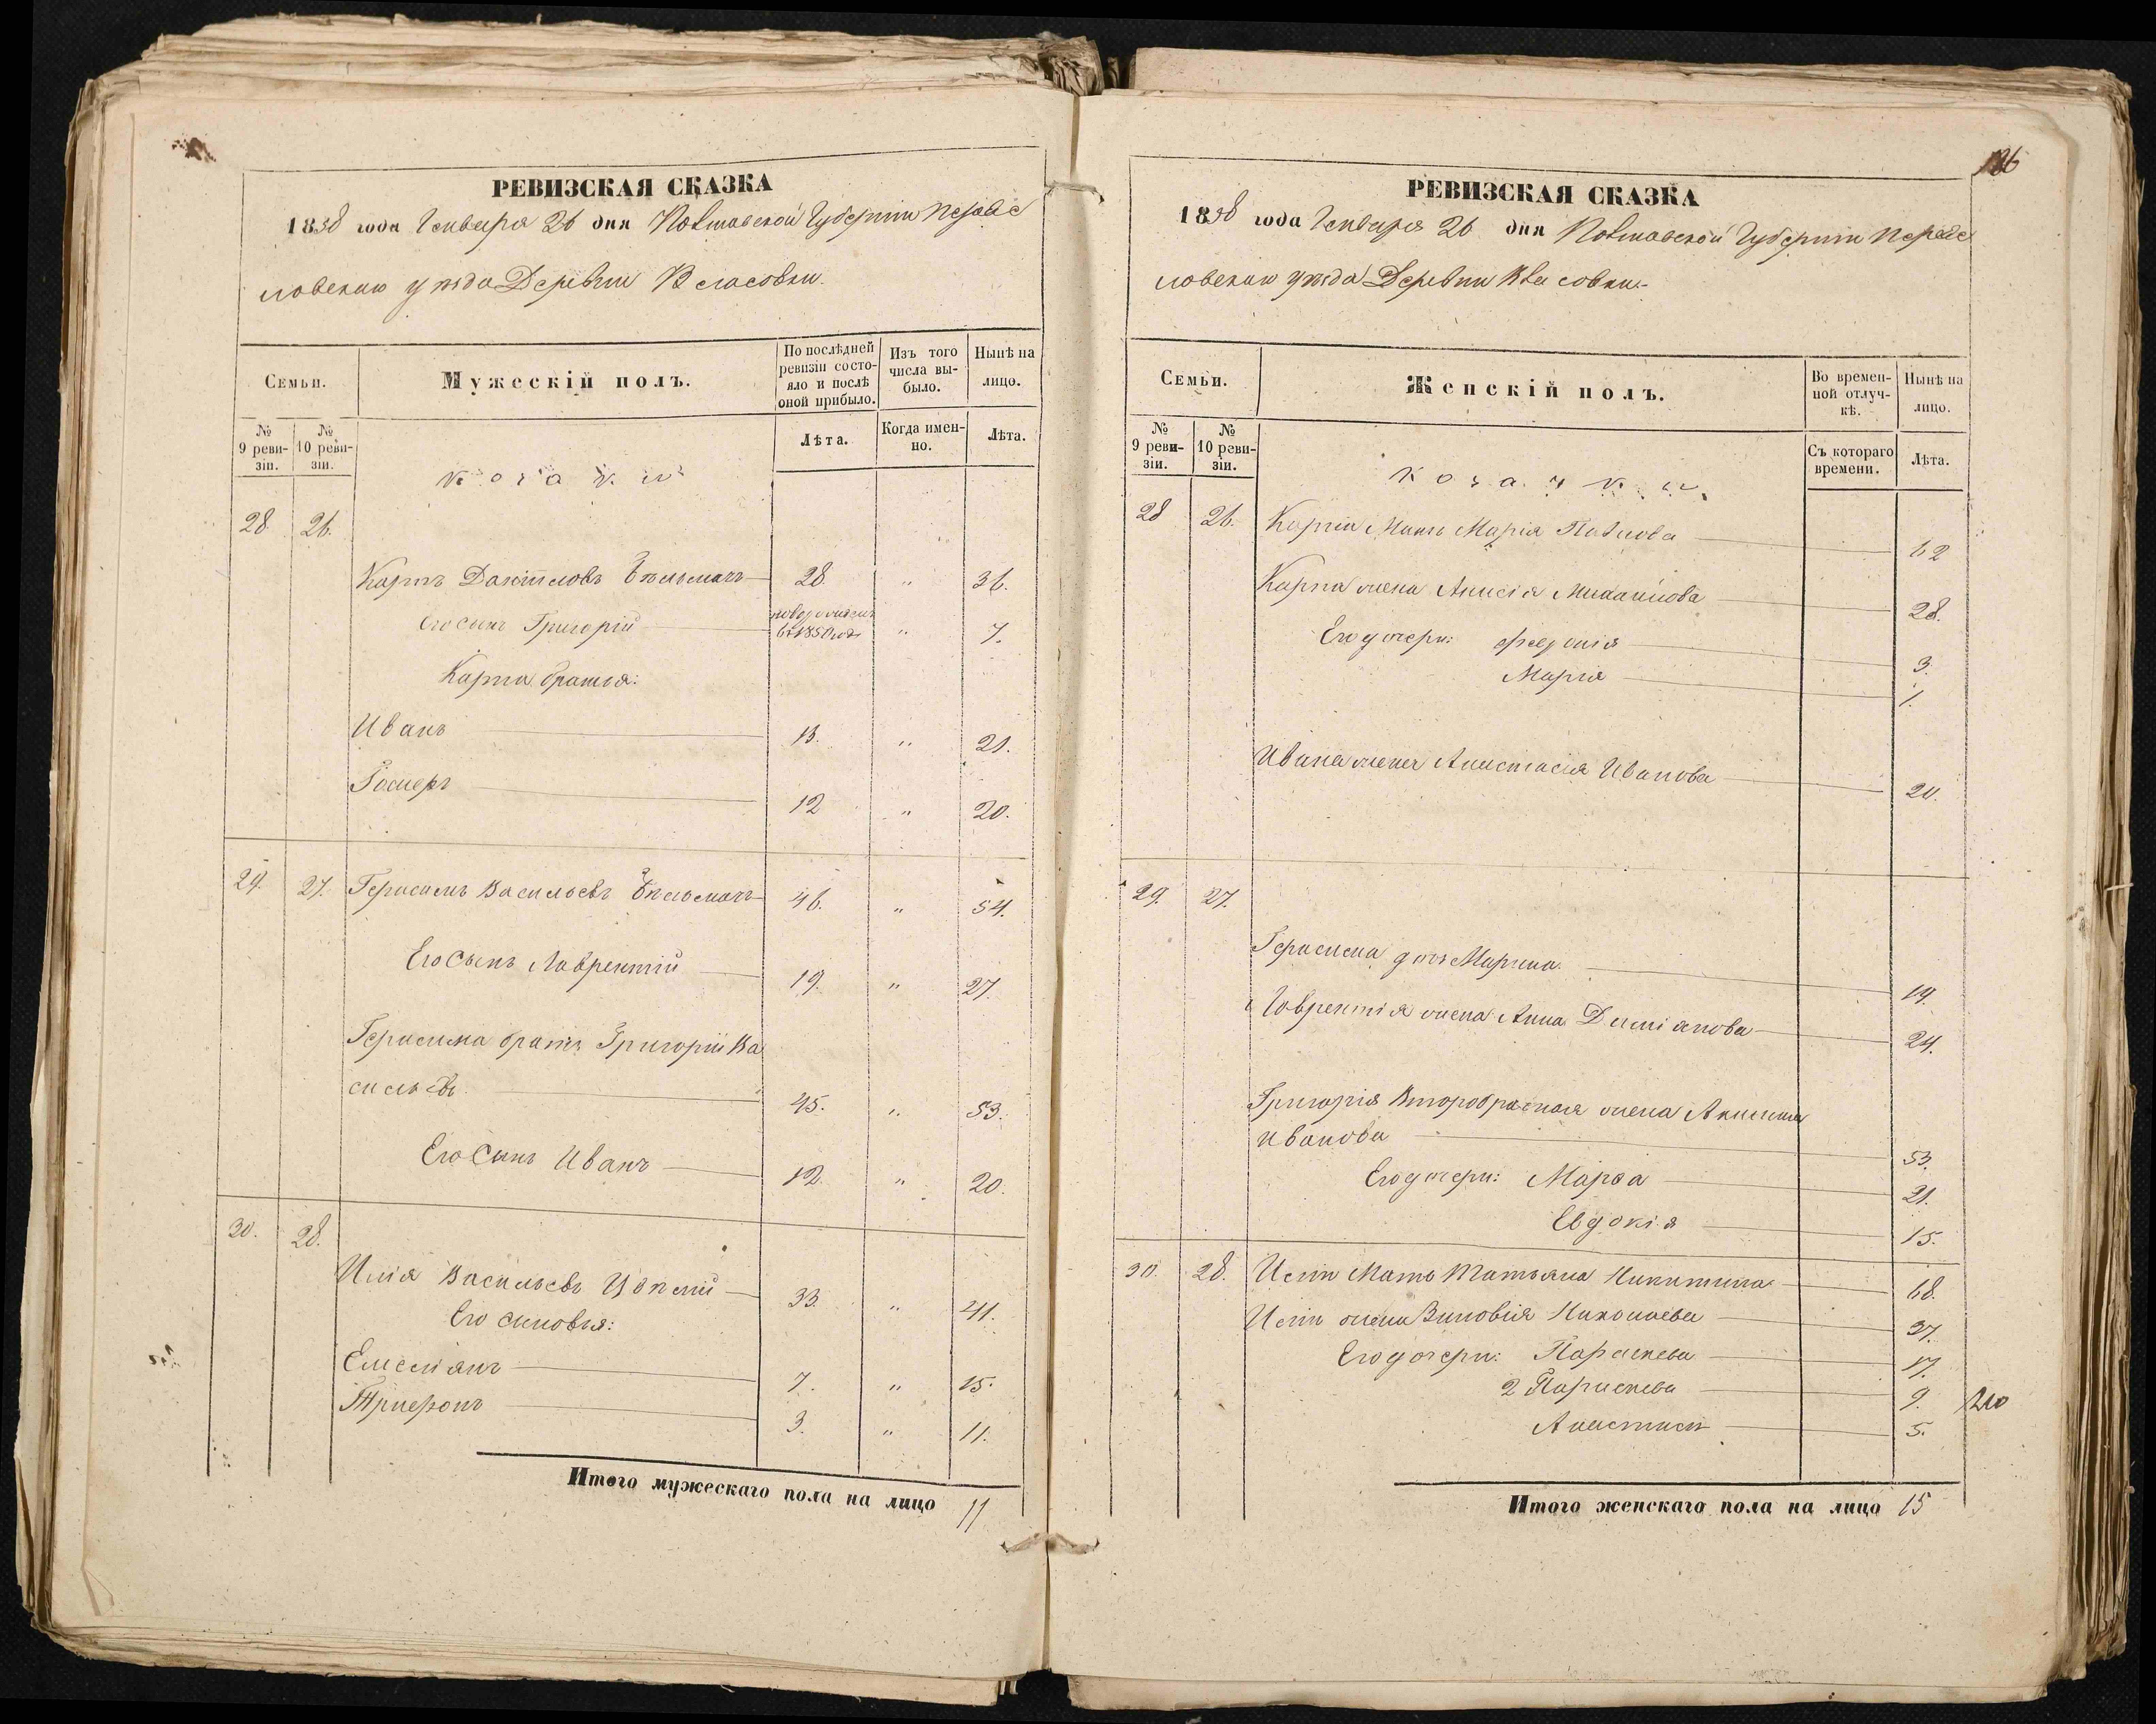 РЕВИЗСКАЯ СКАЗКА
1858 года Генваря 26 дня Полтавской Губернии Переяс
ловскаго уѣзда Деревни Власовки.
Семьи.
Мужескій полъ.
По послѣдней ревизіи состояло и послѣ оной прибыло.
Изъ того числа выбыло.
Нынѣ на лицо.
№ 9 ревизіи.
№ 10 ревизіи.
Лѣта.
Когда именно.
Лѣта.
Козаки
28 26.
Карпъ Даніиловъ 28 " 36.
Его сынъ Григорій
въ 1850 годѣ " 7.
Карпа братья:
Иванъ 13. " 21.
12 " 20.
29. 27. Герасимъ Васильевъ 46. " 54.
Его Сынъ Лаврентій 19. " 27.
Герасима братъ Григорій Ва
сильевъ 45. " 53.
Его Сынъ Иванъ 12. " 20.
30. 28.
Илія Васильевъ 33. " 41.
Его сыновья:
Емеліянъ 7. " 15.
Трифонъ 3. " 11.
Итого мужескаго пола на лицо 11
РЕВИЗСКАЯ СКАЗКА
1858 года Генваря 26 дня Полтавской Губернии Переяс
ловскаго уѣзда Деревни Власовки.
Семьи.
Женскій полъ.
Во временной отлучкѣ.
Нынѣ на лицо.
№ 9 ревизіи.
№ 10 ревизіи.
Съ котораго времени.
Лѣта.
Козачки.
28 26. Карпа Мать Марія Павлова 62
Карпа жена Анисія Михайлова 28.
Его дочери: Федосія 3.
Марія 1.
Ивана жена Анастасія Иванова 20.
29. 27.
Герасима дочь Марина 19.
Лаврентія жена Анна Даміанова 24.
Григорія Второбрачная жена
Иванова 53.
Его дочери: Марфа 21.
Евдокія 15.
30. 28. Иліи Мать Татьяна Никитина 68.
Иліи жена Зиновія Николаева 37.
Его дочери: Параскева 17.
2 Параскева 9.
5.
Итого женскаго пола на лицо 15